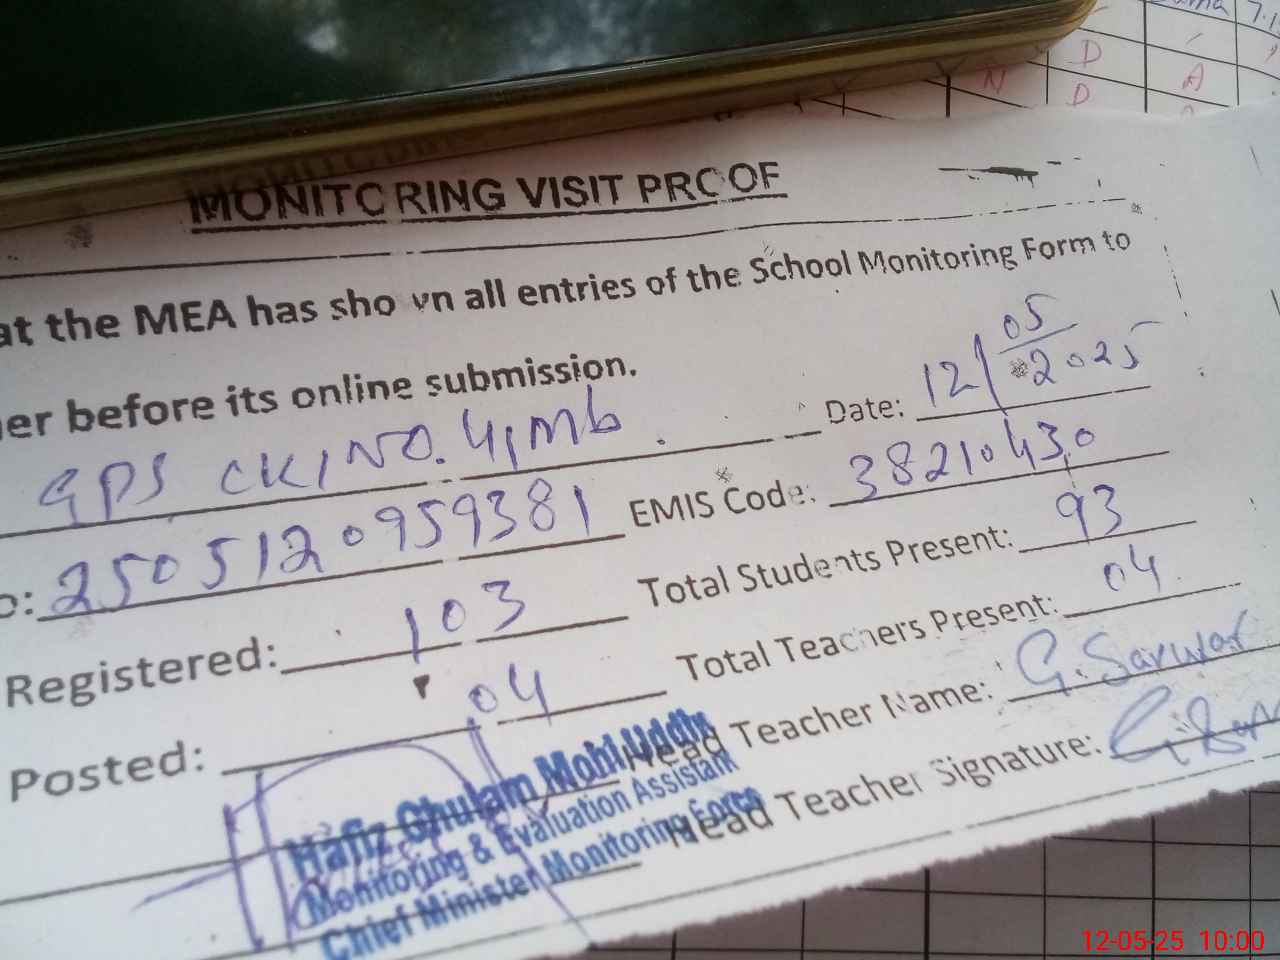 MONITORING VISIT PROOF
at the MEA has shown all entries of the School Monitoring Form to
er before its online submission.
GPS CK/NO. 4/MB. Date: 12/05/2025
o: 2505120959381 EMIS Code: 38210430
Registered: 103 Total Students Present: 93
Posted: 04 Total Teachers Present: 04
Head Teacher Name: G. Sarwar
Head Teacher Signature:
Hafiz Ghulam Mohi Uddin
Monitoring & Evaluation Assistant
Chief Minister Monitoring Force
12-05-25 10:00